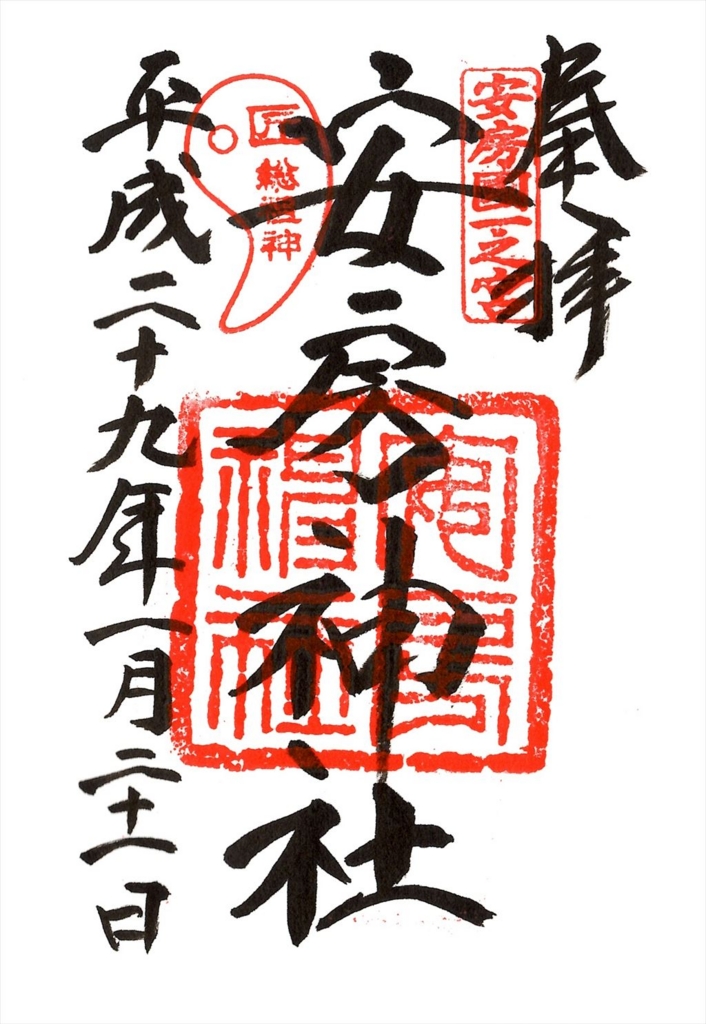 奉拝
安房国一之宮
安房神社
安房神社
匠
総祖神
平成二十九年一月二十一日